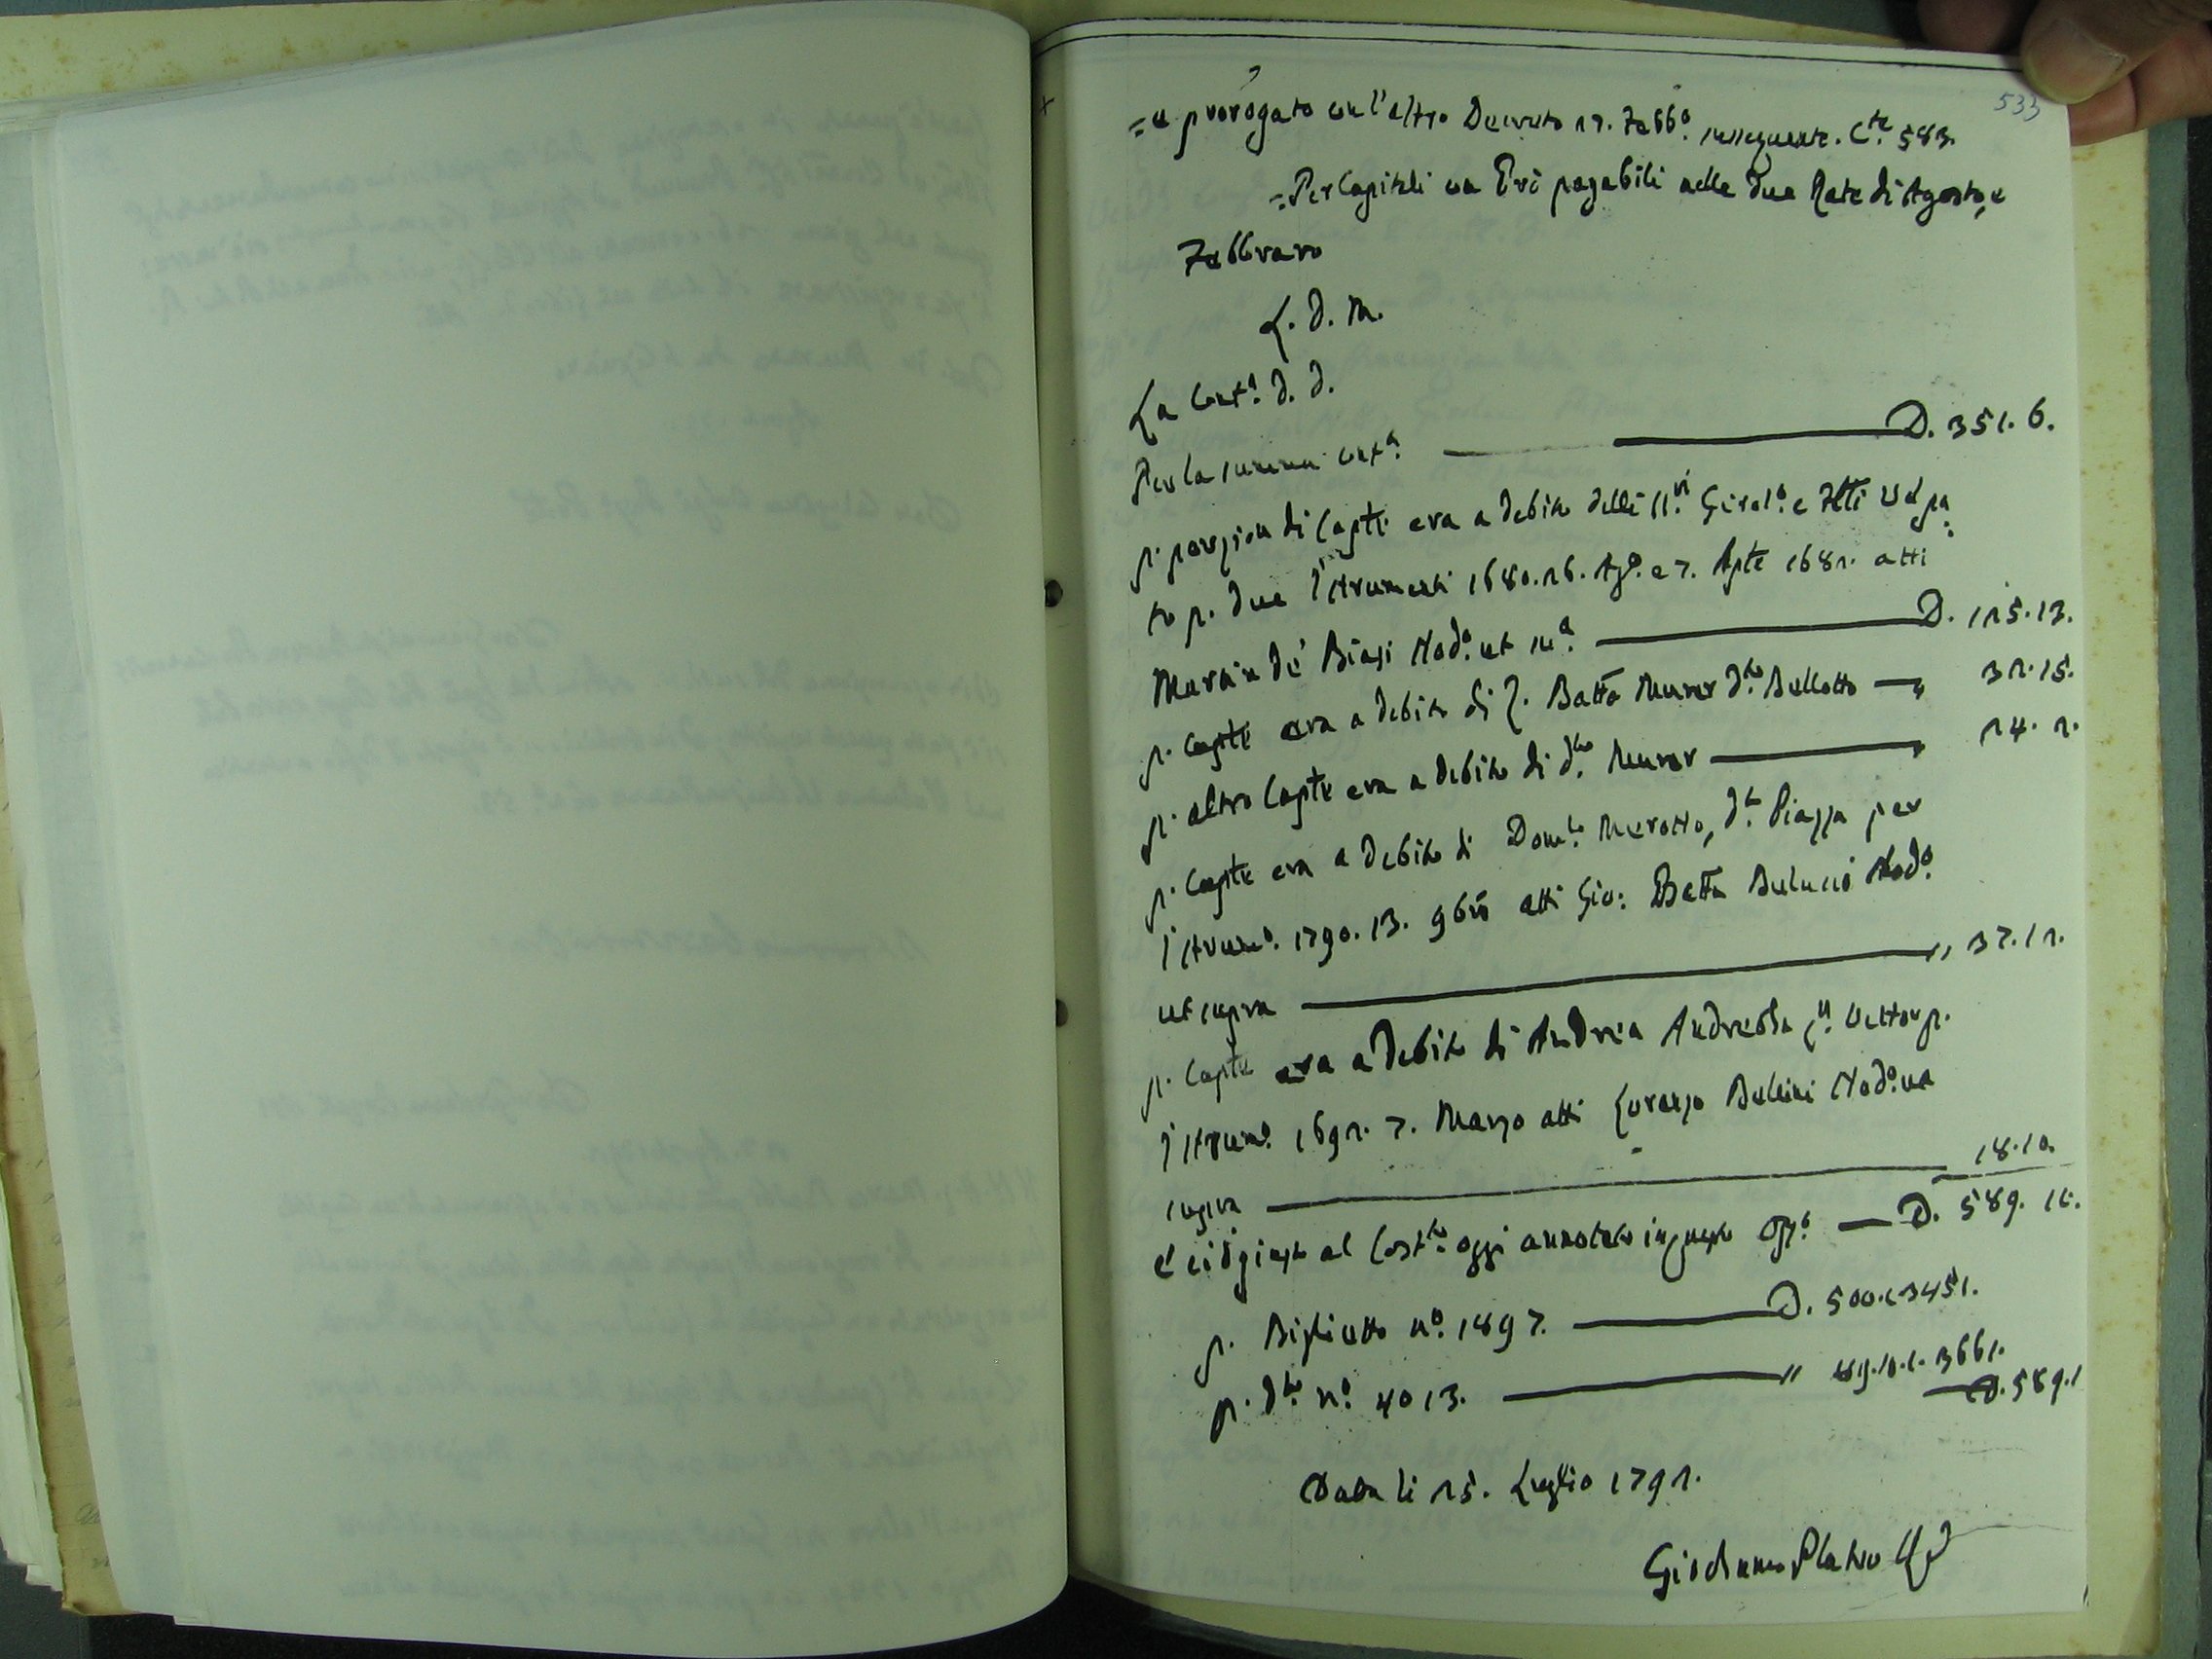 533
= e prorogato con l'altro Decreto 17. Febb.o susseguente. C.te 583.
= Per Capitali con Prò pagabili nelle due Rate di Agosto, e
Febbraro
L. D. M.
La Cont.a D. D.
Per la summa cont.a D. 351. 6.
p. porzion di Capte era a debito delli SS.ri Girol.o e Flli
to p. due Istrumenti 1680. 26. Ag.o e 7. 1682. atti
Marin de' Biasi Nod.o ut su.a D. 125. 13.
p. Capte era a debito di Z. Batta Murer d.to Bellotto „ 32. 15.
p. altro Capte era a debito di d.to Murer „ 24. 2.
p. Capte era a debito di Dom.co Merotto, d.to Piazza per
Istrum.o 1790. 13. 9bre atti Gio: Batta Nod.o
ut supra „ 37. 12.
p. Capte era a debito di Andrea Andreetta q.m Vettor p.
Istrum.o 1692. 7. Marzo atti Lorenzo Bellini Nod.o ut
supra 18. 10.
e ciò giusto al Cost.to oggi annotato in questo Off.o D. 589. 10.
p. Biglietto n.o 1897. D. 500. c. 3451.
p. d.to n.o 4013. „ 89. 10. c. 3661.
D. 589. 1
Data li 25. Luglio 1792.